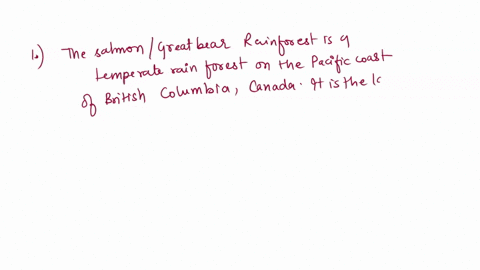 1.) The salmon/Great bear Rainforest is a
temperate rain forest on the Pacific coast
of British Columbia, Canada. It is the